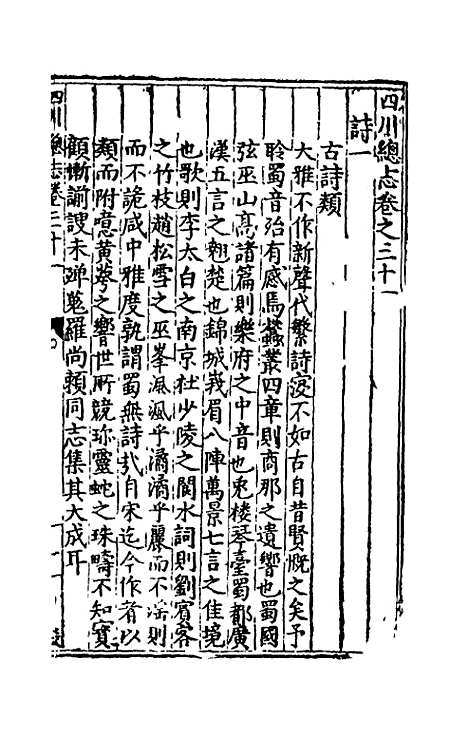 四川總志卷之三十一
詩一
古詩類
大雅不作新聲代繁詩寖不如古自昔賢慨之矣予
聆蜀音殆有感焉蠶叢四章則商那之遺響也蜀國
弦巫山高諸篇則樂府之中音也兎楼琴臺蜀都廣
漢五言之翹楚也錦城峩眉八陣萬景七言之佳境
也歌則李太白之南京杜少陵之閬水詞則劉賓客
之竹枝趙松雪之巫峯渢渢乎潏潏乎麗而不滛則
而不詭咸中雅度孰謂蜀無詩㢤自宋迄今作者以
類而附噫黄蕚之響世所競珎靈蛇之珠疇不知寳
顧慚謭謏未殫蒐羅尚頼同志集其大成耳
四川總志卷三十一